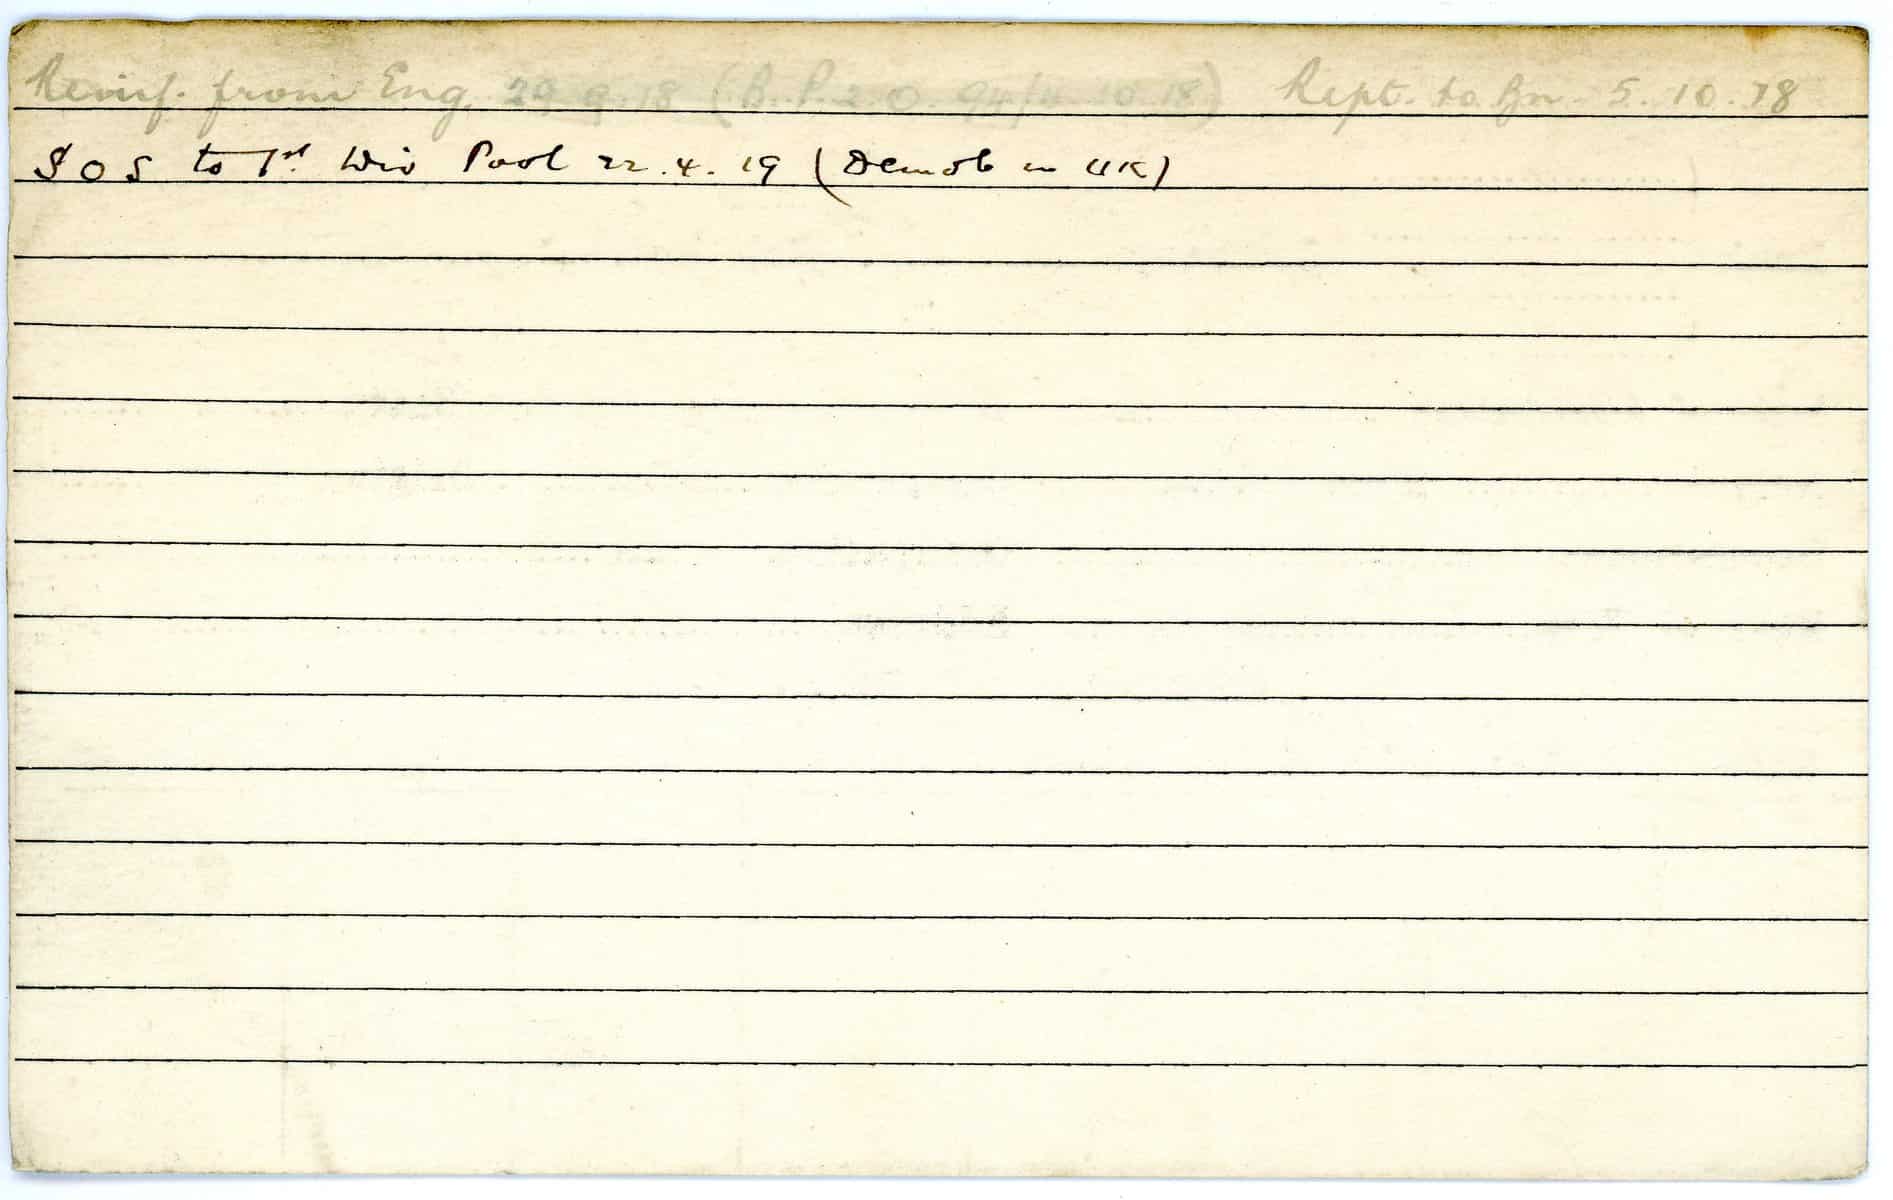 Reinf. from Eng. 29.9.18 (B.P.2.O. 94/4.10.18) Rept. to Bn. 5.10.18
SOS to 1st Div Pool 22.4.19 (Demob in UK)